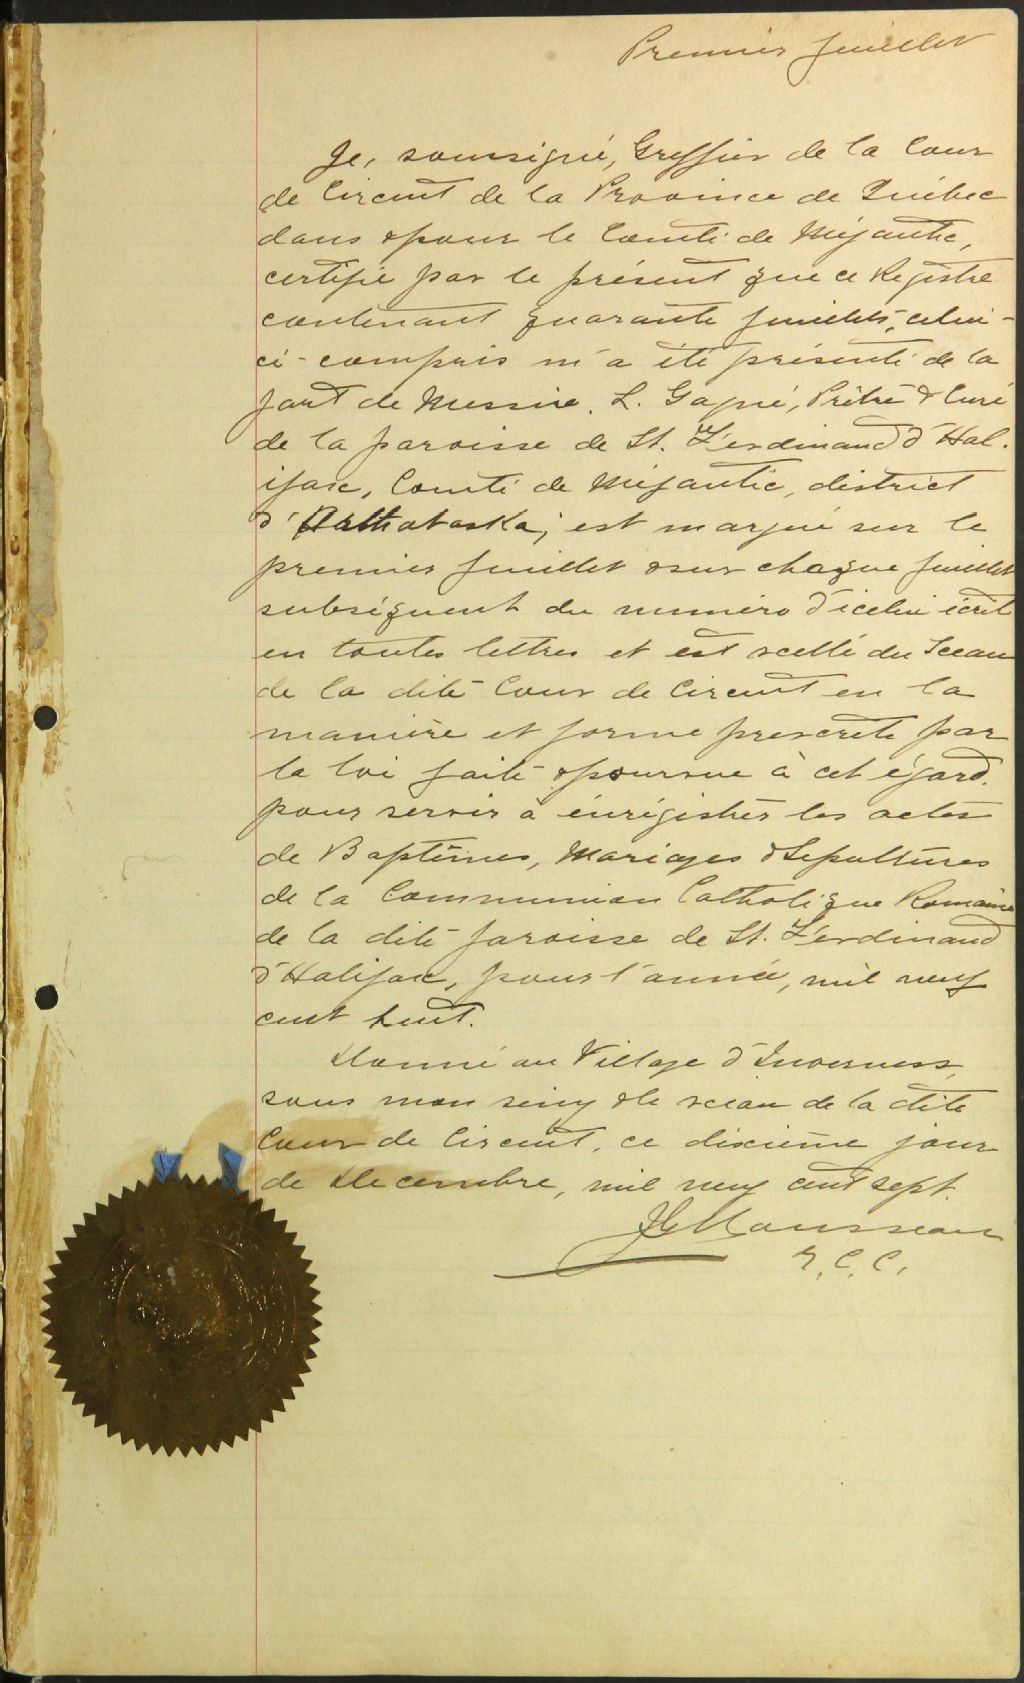 Premier feuillet
Je, soussigné, Greffier de la Cour
de Circuit de la Province de Québec
dans & pour le Comté de Mégantic,
certifie par le présent que ce Registre
contenant quarante feuillets, celui-
ci-compris m'a été présenté de la
part de Messire. L. Gagné, Prêtre & Curé
de la paroisse de St. Ferdinand d'Hal-
ifax, Comté de Mégantic, district
d'Arthabaska; est marqué sur le
premier feuillet & sur chaque feuillet
subséquent du numéro d'icelui écrit
en toutes lettres et est scellé du Sceau
de la dite Cour de Circuit en la
manière et forme prescrite par
la loi faite & pourvue à cet égard.
pour servir à enrégistrer les actes
de Baptêmes, Mariages & Sepultures
de la Communion Catholique Romaine
de la dite paroisse de St. Ferdinand
d'Halifax, pour l'année, mil neuf
cent huit.
Donné au Village d'Inverness,
sous mon seing & le sceau de la dite
Cour de Circuit, ce dixième jour
de Decembre, mil neuf cent sept.
Mousseau
G. C. C.